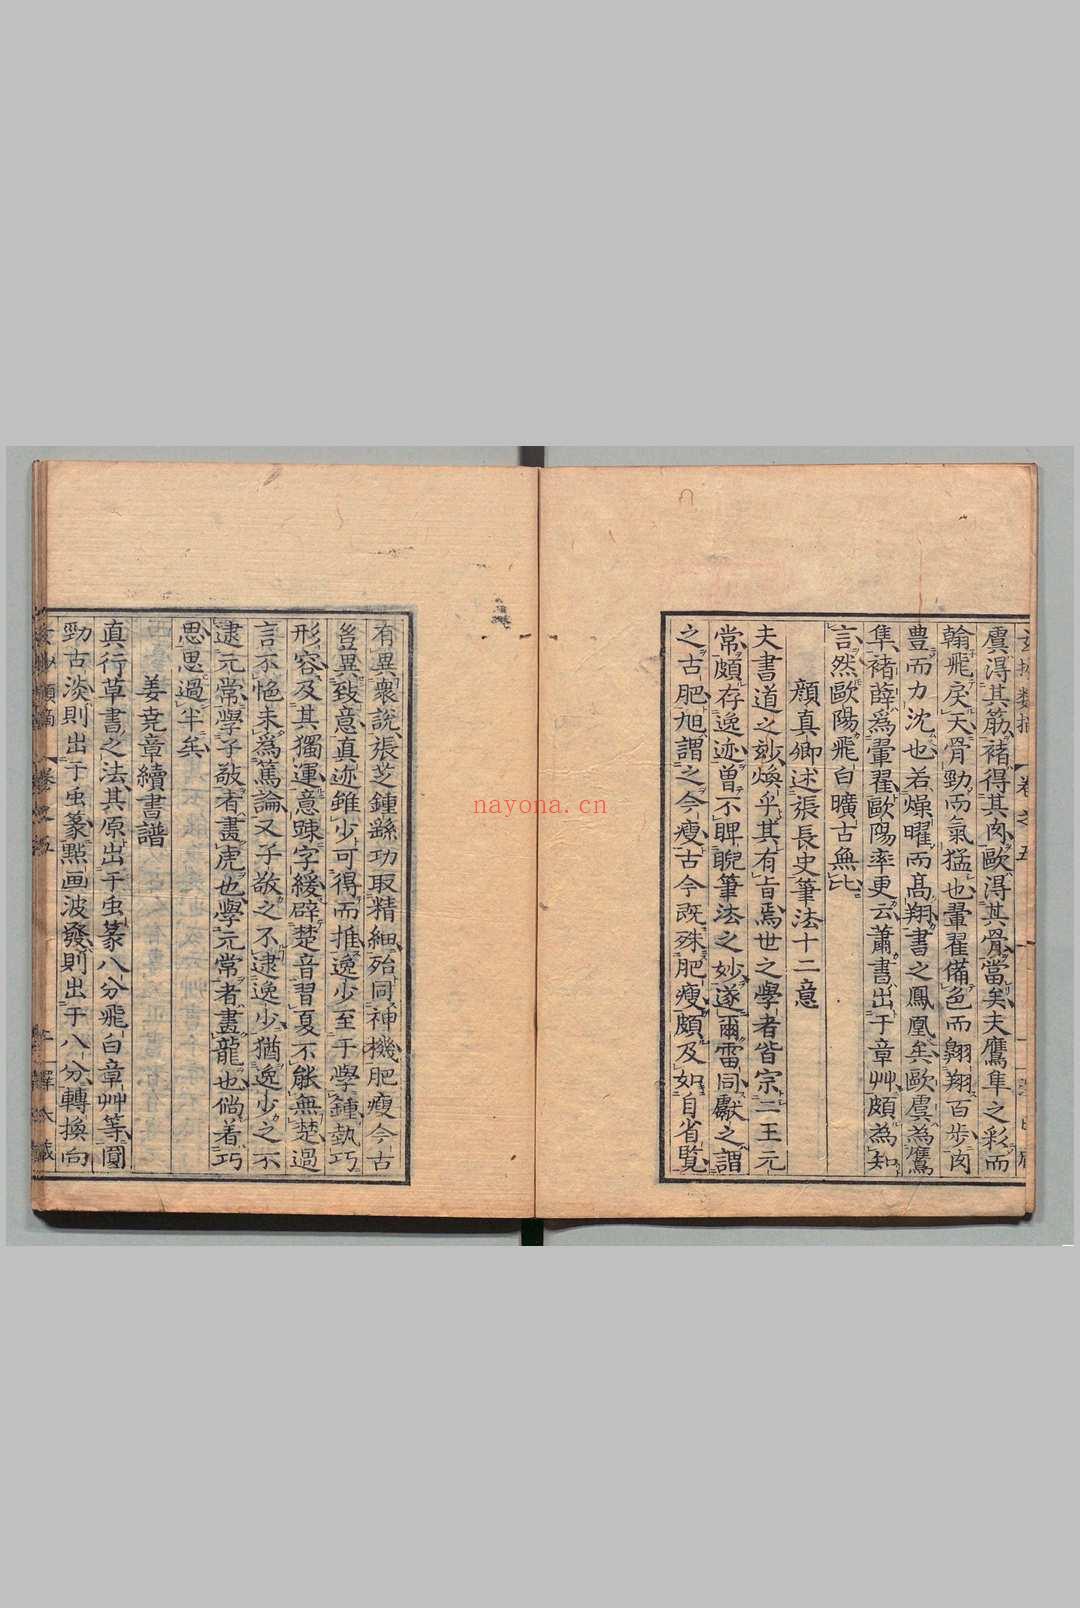 虞得其筋褚得其肉歐得其骨當矣夫鷹隼之彩而
翰飛戾天骨勁而氣猛也翬翟備色而翺翔百步肉
豊而力沈也若燥曜而髙翔書之鳳凰矣歐虞為鷹
隼褚薛爲翬翟歐陽率更云蕭書出于章艸頗為知
言然歐陽飛白曠古無比
顔真卿述張長史筆法十二意
夫書道之妙煥乎其有旨焉世之學者皆宗二王元
常頗存逸迹曽不睥睨筆法之妙遂爾雷同獻之謂
之古肥旭謂之今瘦古今既殊肥瘦頗及如自省覧
有異衆說張芝鍾繇功取精細殆同神機肥瘦今古
豈異致意真迹雖少可得而推逸少至于學鍾埶巧
形容及其獨運意踈字緩辟楚音習夏不能無楚過
言不悒未爲篤論又子敬之不逮逸少猶逸少之不
逮元常學子敬者畫虎也學元常者畫龍也倘着巧
思思過半矣
姜尭章續書譜
真行草書之法其原出于虫篆八分飛白章艸等圓
勁古淡則出于虫篆㸃画波發則出于八分轉換向
nayona.cn